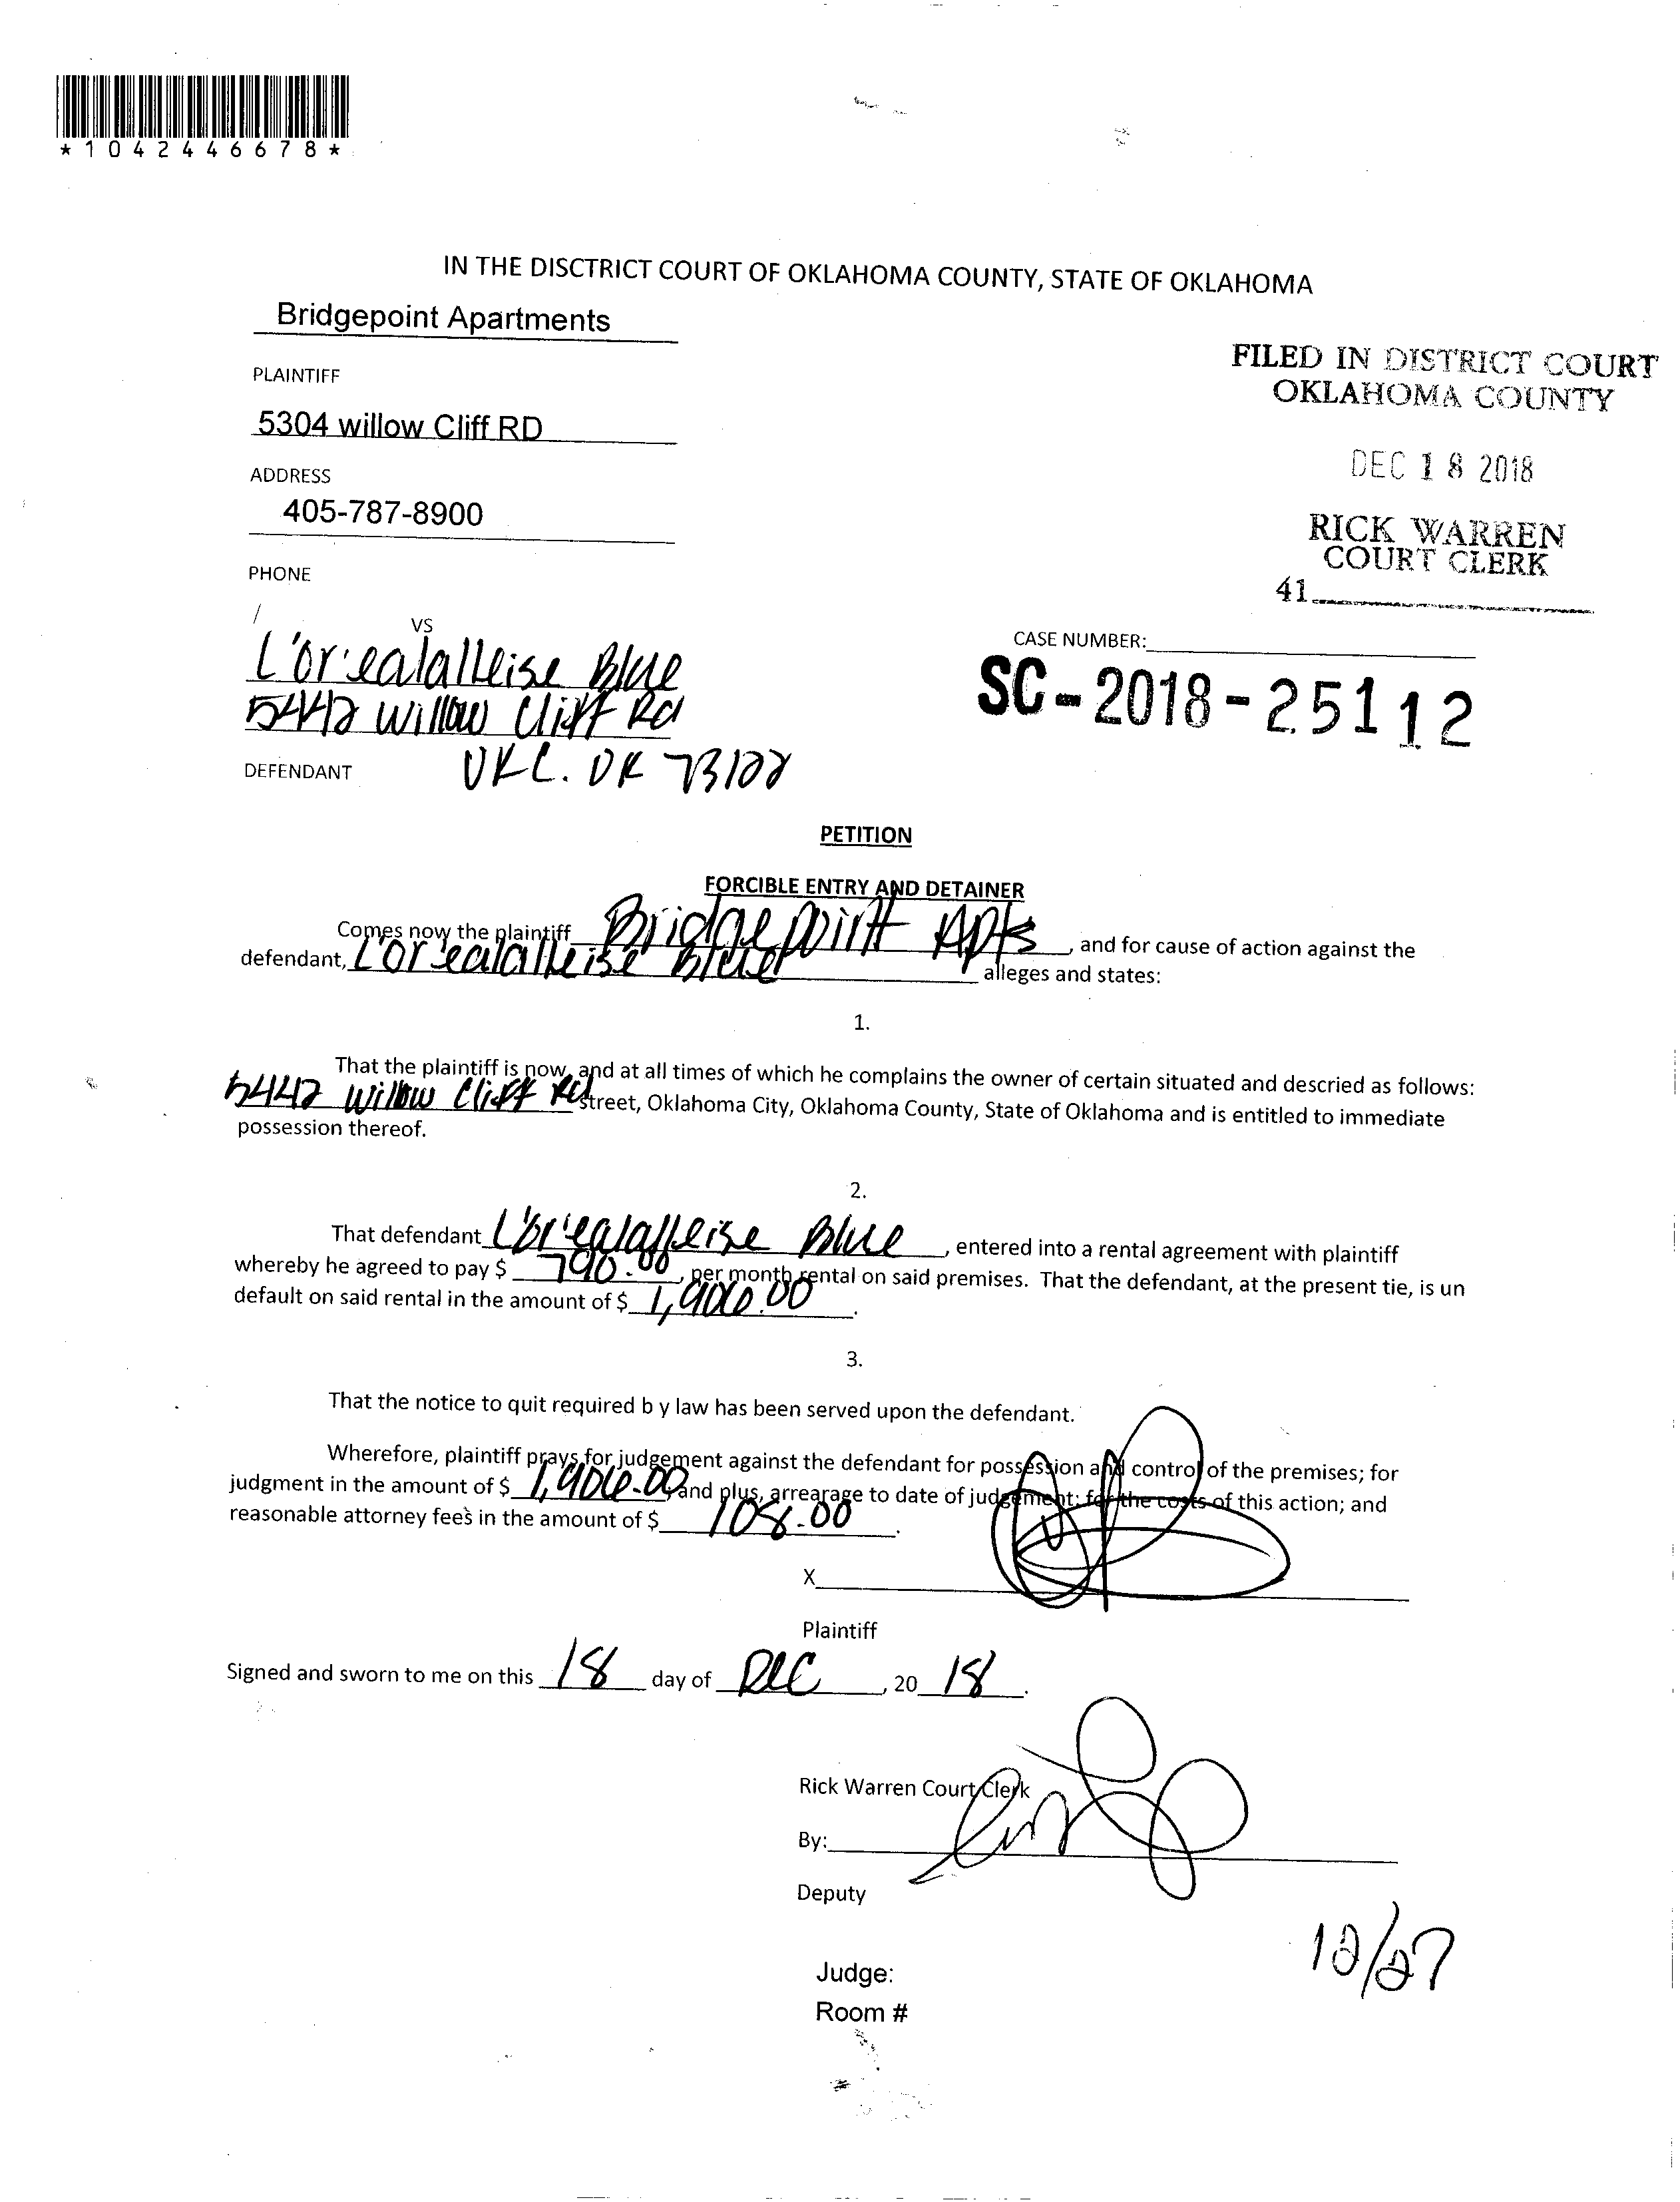 *1042446678*
IN THE DISCTRICT COURT OF OKLAHOMA COUNTY, STATE OF OKLAHOMA
Bridgepoint Apartments
PLAINTIFF
5304 willow Cliff RD
ADDRESS
405-787-8900
PHONE
FILED IN DISTRICT COURT
OKLAHOMA COUNTY
DEC 18 2018
RICK WARREN
COURT CLERK
41
VS
L'or'ealalleise Blue
5442 Willow Cliff Rd
DEFENDANT OKC. OK 73122
CASE NUMBER:
SC-2018-25112
PETITION
FORCIBLE ENTRY AND DETAINER
Comes now the plaintiff Bridgepoint Apts, and for cause of action against the
defendant, L'or'ealalleise Blue alleges and states:
1.
That the plaintiff is now, and at all times of which he complains the owner of certain situated and descried as follows:
5442 Willow Cliff Rd street, Oklahoma City, Oklahoma County, State of Oklahoma and is entitled to immediate
possession thereof.
2.
That defendant L'or'ealalleise Blue, entered into a rental agreement with plaintiff
whereby he agreed to pay $ 790.00, per month rental on said premises. That the defendant, at the present tie, is un
default on said rental in the amount of $ 1,906.00.
3.
That the notice to quit required b y law has been served upon the defendant.
Wherefore, plaintiff prays for judgement against the defendant for possession and control of the premises; for
judgment in the amount of $ 1,906.00 and plus, arrearage to date of judgement; for the costs of this action; and
reasonable attorney fees in the amount of $ 108.00.
X
Plaintiff
Signed and sworn to me on this 18 day of DEC, 20 18.
Rick Warren Court Clerk
By:
Deputy
12/27
Judge:
Room #